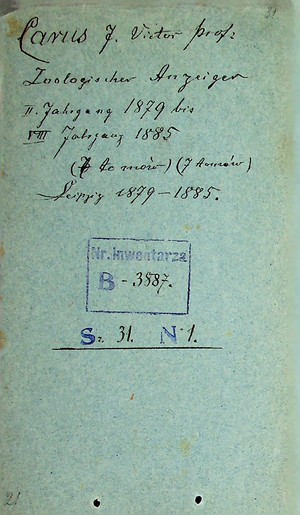 31
Carus J. Victor prof:
Zoologischer Anzeiger
II. Jahrgang 1879 bis
VIII Jahrgang 1885
(7 tomów) (7 tomów)
Leipzig 1879-1885.
Nr. inwentarza
B - 3887.
Sz. 31. N 1.
21